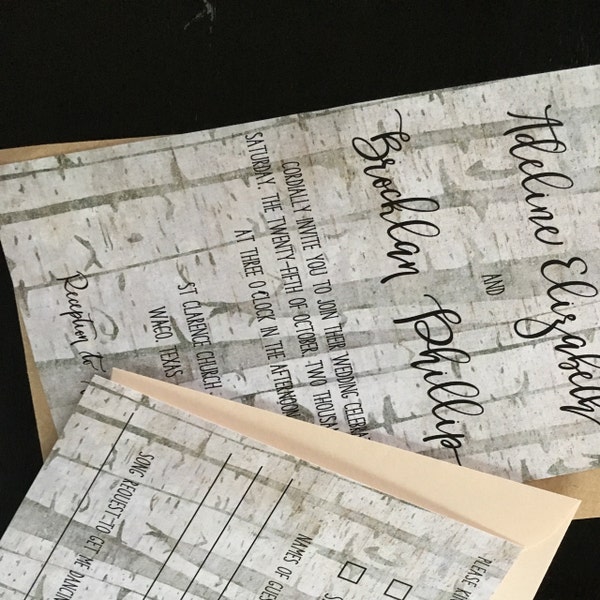 Adeline Elizabeth
AND
Brocklan Phillip
CORDIALLY INVITE YOU TO JOIN THEIR WEDDING CELEBRA
SATURDAY, THE TWENTY-FIFTH OF OCTOBER, TWO THOUSA
AT THREE O CLOCK IN THE AFTERNOON
ST CLARENCE CHURCH
WACO, TEXAS
Reception to
PLEASE KIN
NAMES OF GUES
SONG REQUEST-TO GET ME DANCIN